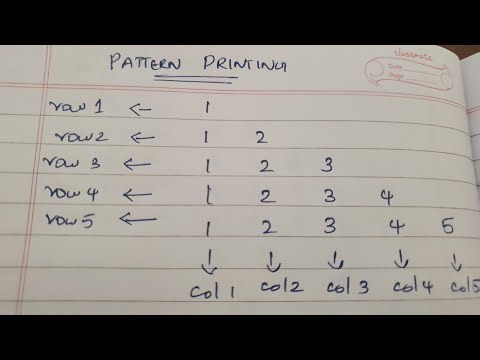 classmate
Date
Page
PATTERN PRINTING
row 1 ← 1
row 2 ← 1 2
row 3 ← 1 2 3
row 4 ← 1 2 3 4
row 5 ← 1 2 3 4 5
↓ ↓ ↓ ↓ ↓
col 1 col 2 col 3 col 4 col 5